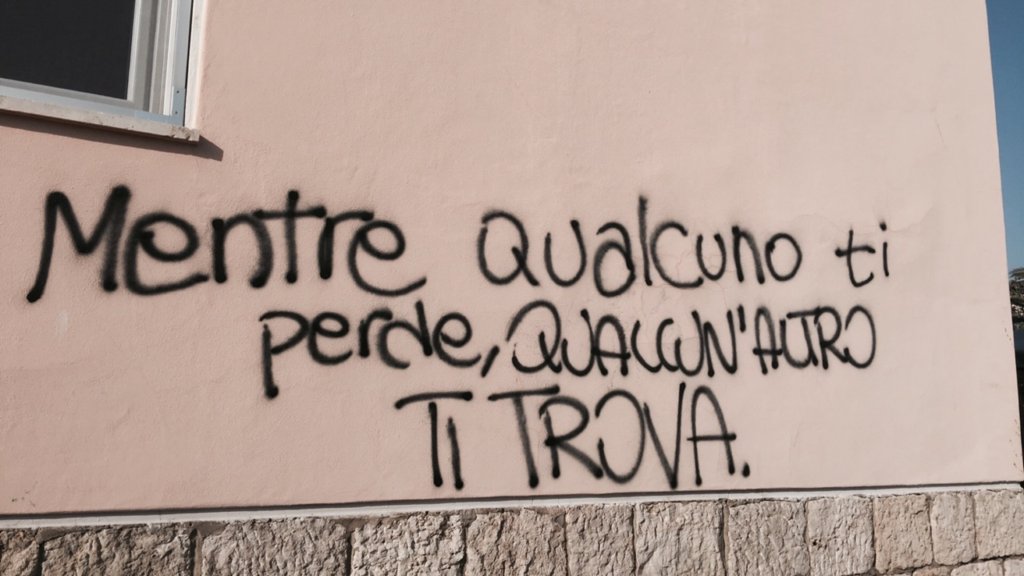 Mentre Qualcuno ti
perde, QUALCUN'ALTRO
TI TROVA.